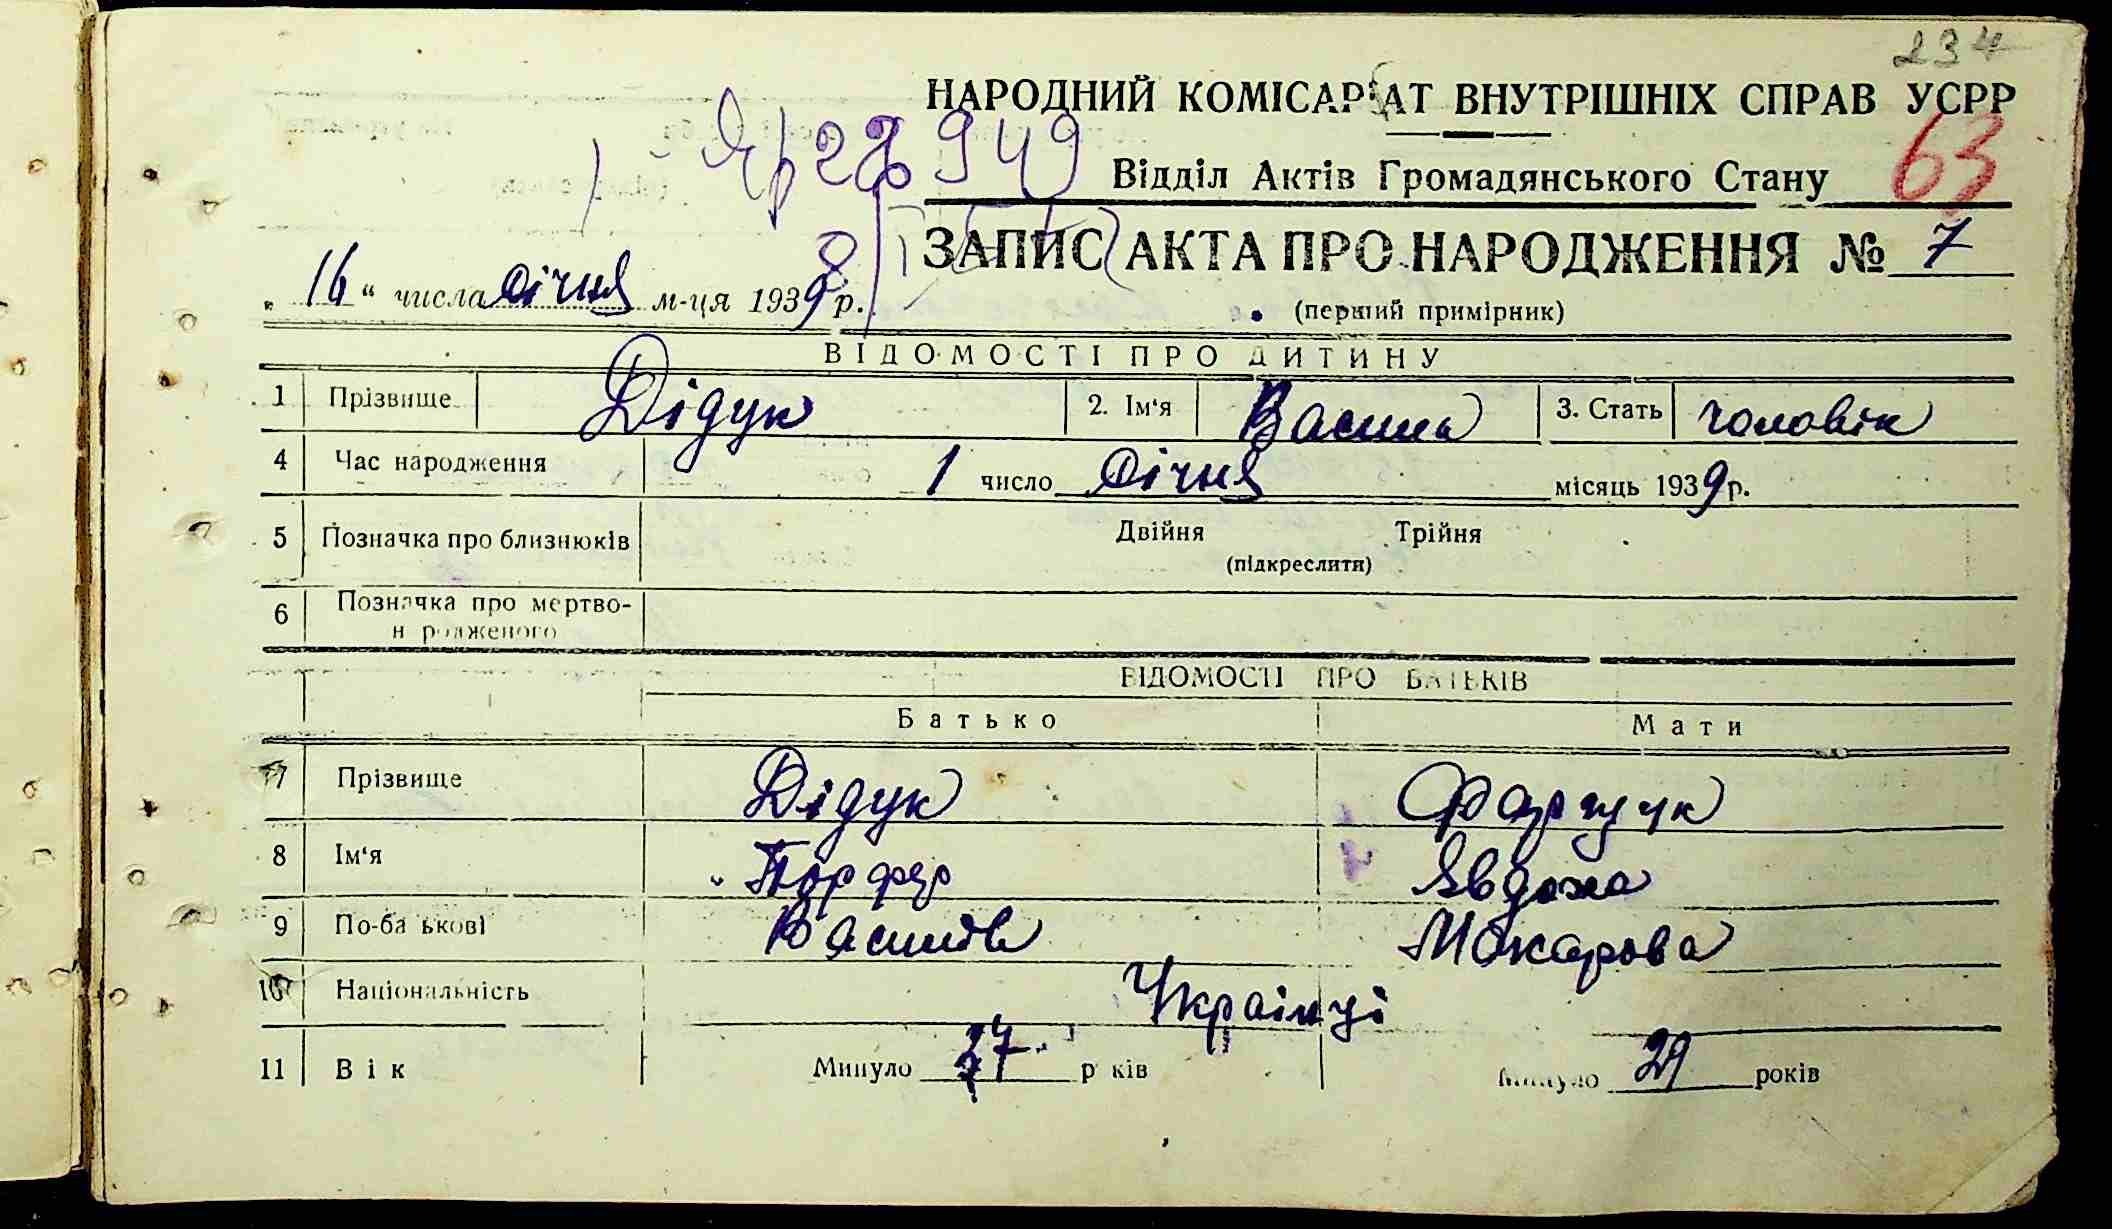 234
НАРОДНИЙ КОМІСАРІАТ ВНУТРІШНІХ СПРАВ УСРР
63
Яр 2 949
Відділ Актів Громадянського Стану
ЗАПИС АКТА ПРО НАРОДЖЕННЯ № 7
„ 16 “ числа січня м-ця 1939 р.
(перший примірник)
ВІДОМОСТІ ПРО ДИТИНУ
1 Прізвище Дідук 2. Ім'я Василь 3. Стать чоловік
4 Час народження 1 число січня місяць 1939 р.
5 Позначка про близнюків Двійня Трійня
(підкреслити)
6 Позначка про мертво-
н родженого
ВІДОМОСТІ ПРО БАТЬКІВ
Батько Мати
7 Прізвище Дідук Фарщук
8 Ім'я Порфер Явдоха
9 По-ба ькові Василів Макарова
10 Національність Українці
11 Вік Минуло 37 р ків Минуло 29 років